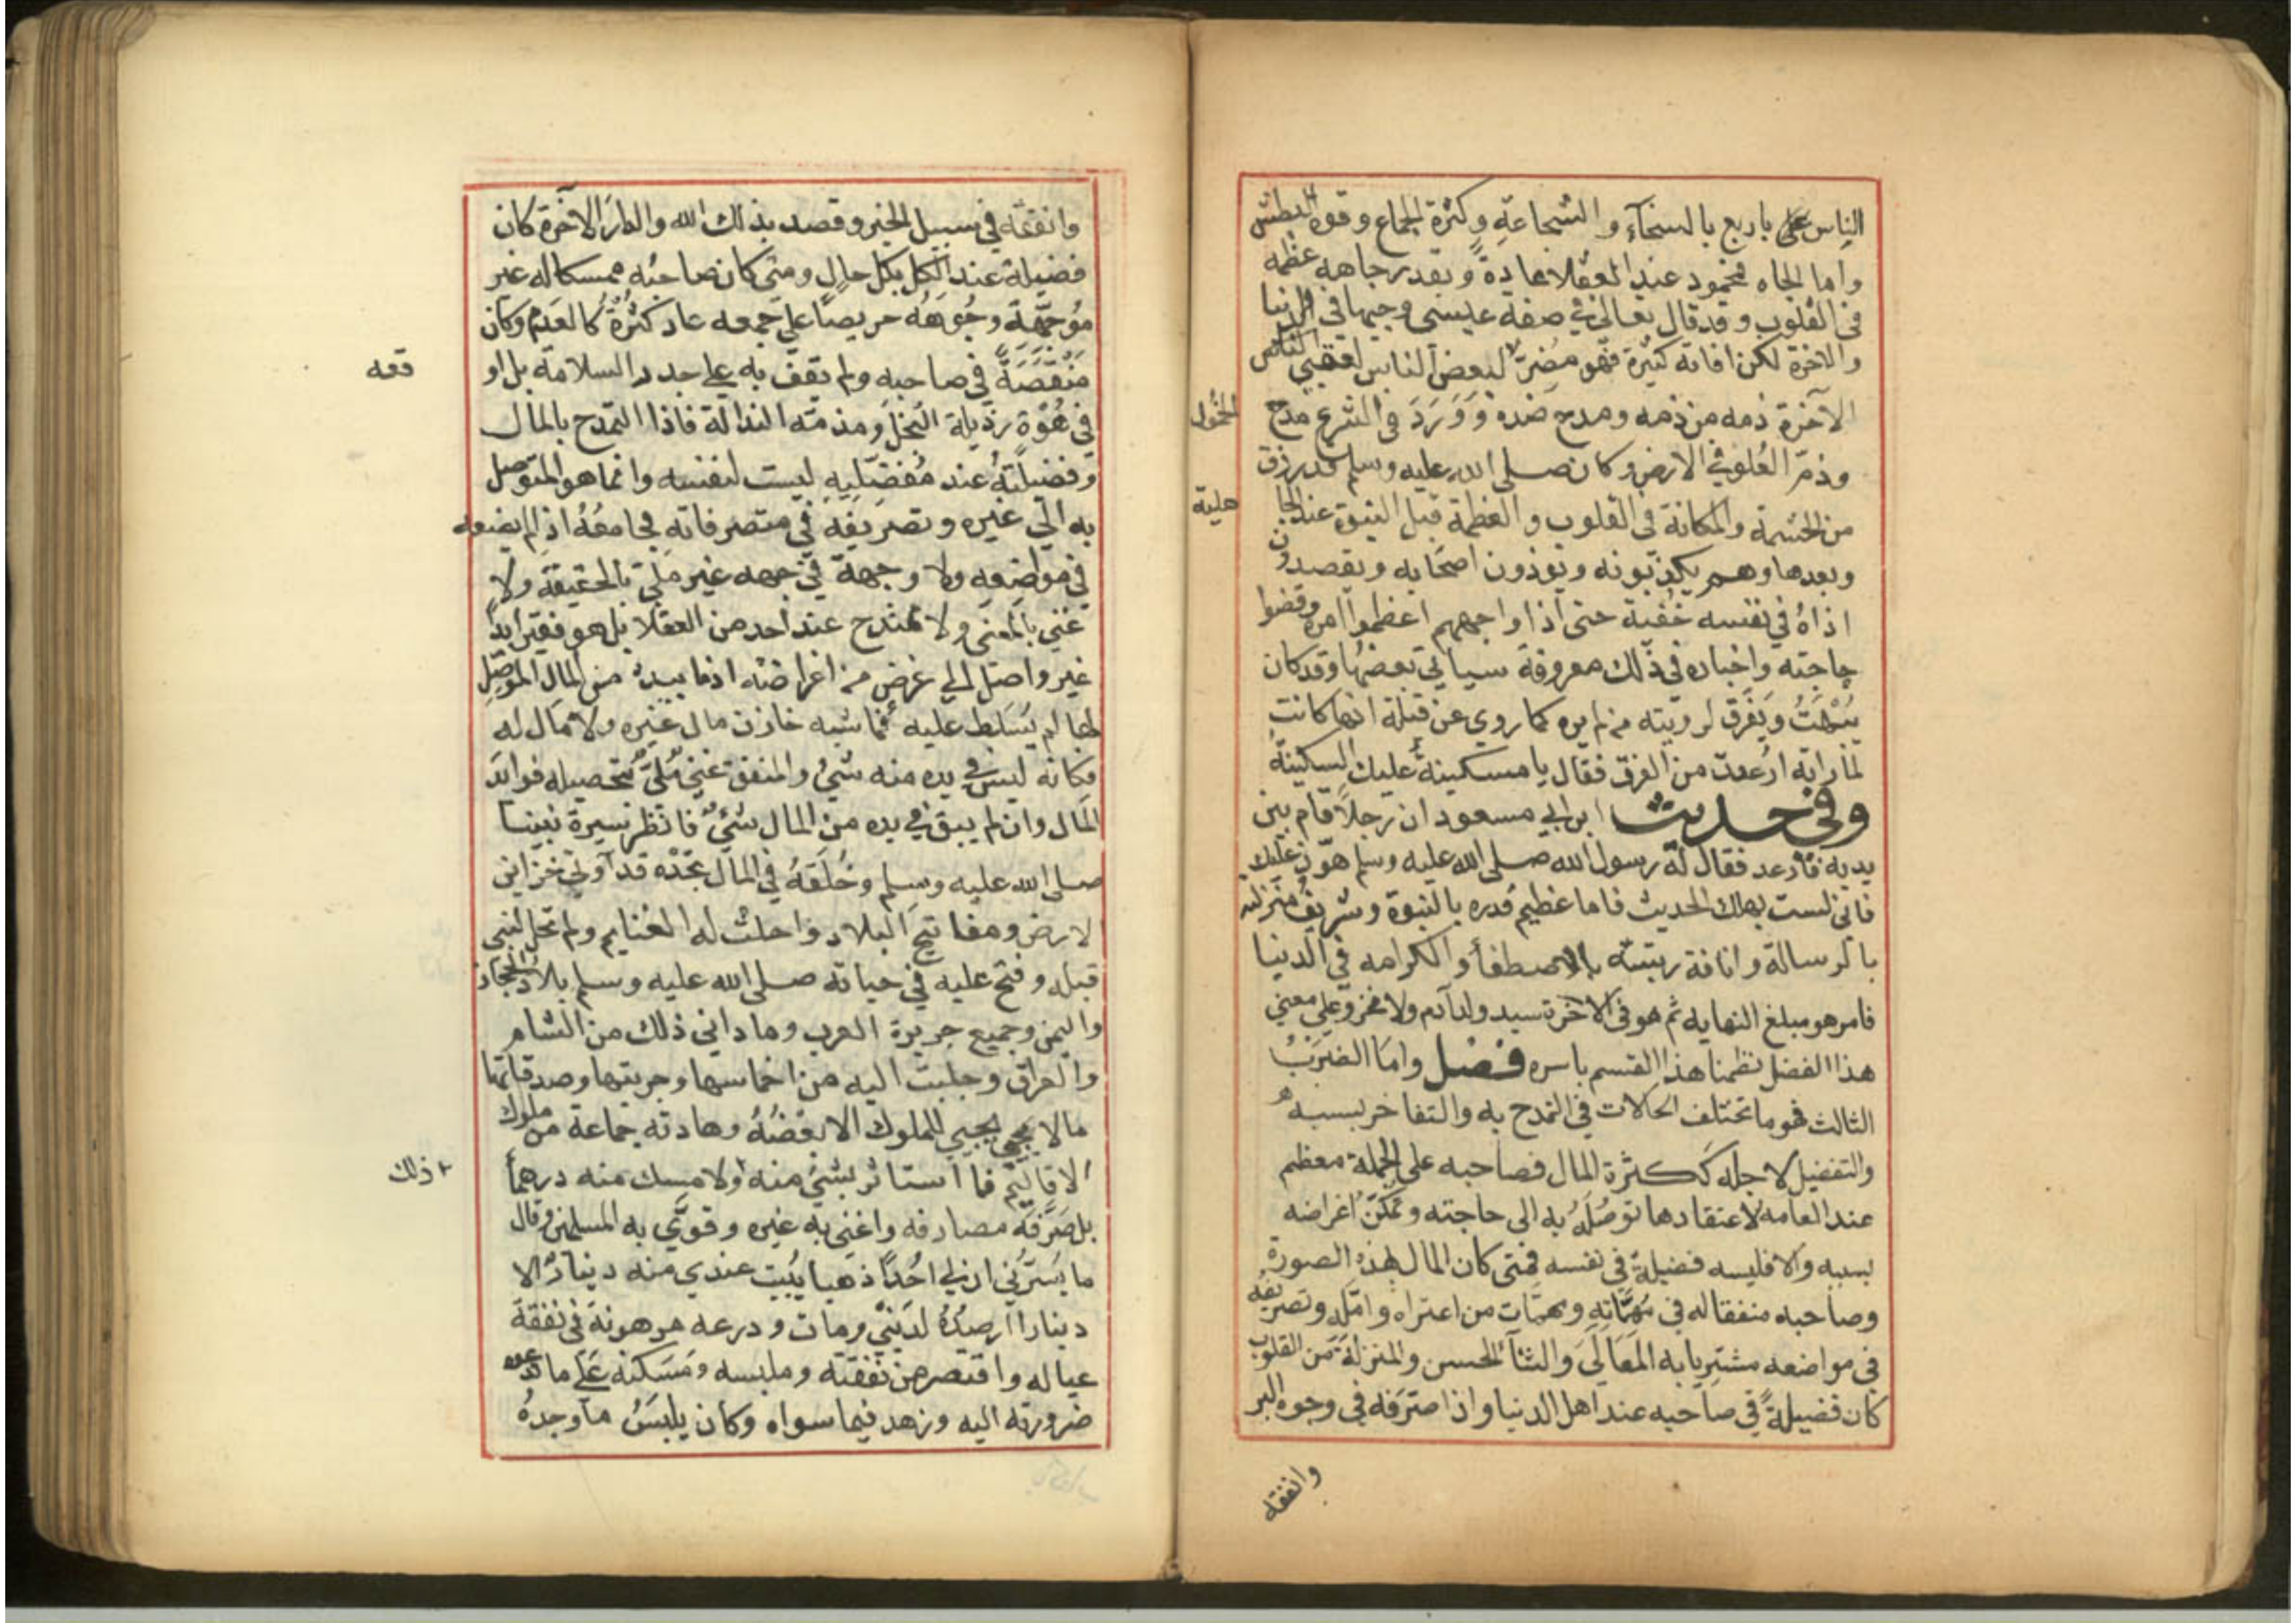 الناس على باربع بالسخآء والشجاعةِ وكثرة الجماع وقوة البطش
واما الجاه فمحمود عند العقلا عادةً وبقدر جاهه عظمه
فى القلوب وقد قال تعالى فى صفة عيسى وجيها فى الدنيا
والاخرة لكن افاته كثيرة فهو مضرّ لبعض الناس لعقبي الناس
الآخرة ذمه من ذمه ومدح ضده وَوَرَدَ فى الشرع مدح
الخمُول
وذمّ العُلو في الارض وكان صلى الله عليه وسلم قد رزق
من الحشمة والمكانة فى القلوب والعظمة قبل النبوة عند الجا
هلية
وبعدها وهم يكذبونه ويوذون اصحابه ويقصدون
اذاهُ في نفسه خُفية حتى اذا واجههم اعظموا امره وقضوا
حاجته واخباره فى ذلك معروفة سياتي بعضها وقد كان
يُبْهَتُ ويَفْرَق لرويته من لم يره كما روي عن قيلة انها كانت
لما راته ارُعدت من الفرق فقال يا مسكينة عليك السكينة
وفى حديث ابن ابي مسعود ان رجلاً قام بين
يديه فارعد فقال له رسول الله صلى الله عليه وسلم هوّن عليك
فانى لست بملك الحديث فاما عظيم قدره بالنبوة وشريف منزلته
بالرسالة وانافة رتبته بالاصطفأ والكرامه في الدنيا
فامر هو مبلغ النهايه ثم هو فى الاخرة سيد ولد آدم ولا فخر وعلى معني
هذا الفصل نظمنا هذا القسم باسره فصل واما الضربُ
الثالث فهو ما تختلف الحالات في التمدح به والتفاخر بسببه
والتفضيل لاجله ككثرة المال فصاحبه على الجملة معظم
عند العامه لاعتقادها توصُلَهُ به الى حاجته وتمكنّ اغراضه
بسببه والا فليسه فضيلةً في نفسه فمتى كان المال بهذه الصورة
وصاحبه منفقا له فى مُهمّاتِهِ ومهمّات من اعتراه وامّله وتصريفه
فى مواضعه مشتريا به المَعَالَي والثنآ الحسن والمنزلة من القلوب
كان فضيلةً في صاحبه عند اهل الدنيا واذا صَرَفه في وجوه البر
وانفقه
وانفقه في سبيل الخير وقصد بذلك الله والدارَ الاخرة كان
فضيلة عند الكل بكل حالٍ ومتى كان صاحبه ممسكا له غير
مُوَجِّهَهِ وجُوهَهُ حريصًا على جمعه عاد كثرُهُ كالعدم وكان
مَنْقَصَةً في صاحبه ولم يقف به على جدد السلامة بل او
قعه
فى هُوّة رذيلة البُخل ومذمّه النذالة فاذا التمدح بالمال
وفضيلتهُ عند مُفَضّلِيهِ ليست لنفسه وانما هو المتوصل
به الي غيره وتصريفه في متصرفاته فجامعُهُ اذا لم يضعه
فى مواضعه ولا وجهة في جهه غير مَليّ بالحقيقة ولا
غني بالمعنى ولا ممتدح عند احد من العقلا بل هو فقير ابدا
غير واصل الي غرض من اغراضه اذ ما بيده من المال الموصِّل
لها لم يُسَلط عليه فاشبه خازن مال غيره ولا مال له
فكانه ليس في يده منه شئ والمنفق غني مَليّ بتحصيله فوايدَ
المال وان لم يبق في يده من المال شئ فانظر سيرة نبينا
صلى الله عليه وسلم وخُلَقهُ في المال تجدْه قد اوتي خزاين
لارض ومفاتيح البلاد واحلت له الغنايم ولم تحل لنبي
قبله وفتح عليه في حياته صلى الله عليه وسلم بلاد الحجاز
واليمن وجميع جزيرة العرب وما داني ذلك من الشام
والعراق وجلبت اليه من اخماسها وجزيتها وصدقاتها
مالا يجبي للملوك الا بعضُهُ وهادته جماعة من ملوك
الاقاليم فما استاثر بشئ منه ولا مسك منه درهماً
ذلك
بل صَرَّفَه مصارفه واغنى به غيره وقوّي به المسلمين وقال
ما يَسُرّني ان لي احُدًا ذهبا يَبِيت عندي منه دينارٌ الا
دينارا ارصُدُهُ لدَيْني ومات ودرعه مرهونةَ فى نفقة
عياله واقتصر من نفقته وملبسه ومَسكنه عَلَى ما تدعوه
ضرورته اليه وزهد فيما سواه وكان يلبَسُ ما وجدهُ